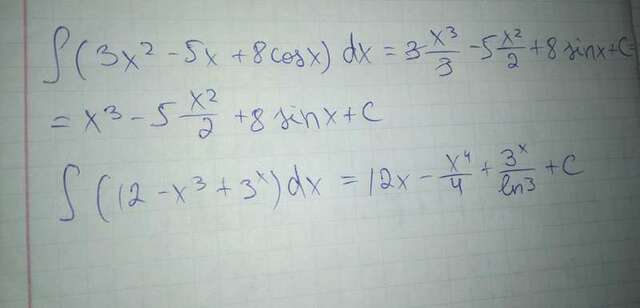 ∫(3x² - 5x + 8cosx) dx = 3 x³/3 - 5 x²/2 + 8 sinx + C =
= x³ - 5 x²/2 + 8 sinx + C
∫(12 - x³ + 3ˣ) dx = 12x - x⁴/4 + 3ˣ/ln3 + C